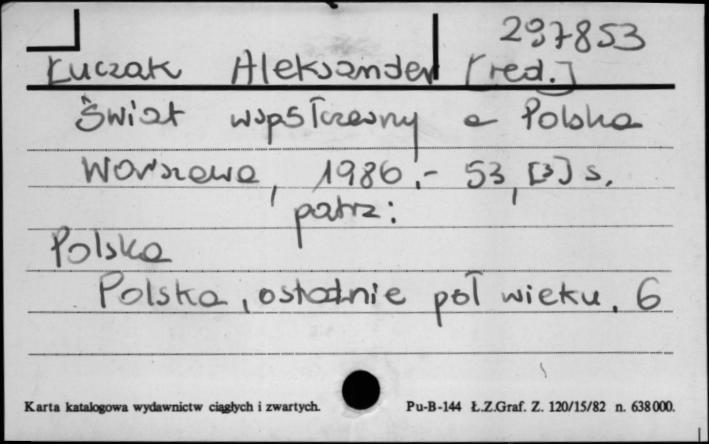 297853
Łuczak Aleksander [red.]
Świat współczesny a Polska
Warszawa, 1986.- 53, [3] s.
patrz:
Polska
Polska, ostatnie pół wieku. 6
Karta katalogowa wydawnictw ciągłych i zwartych. Pu-B-144 Ł.Z.Graf. Z. 120/15/82 n. 638000.